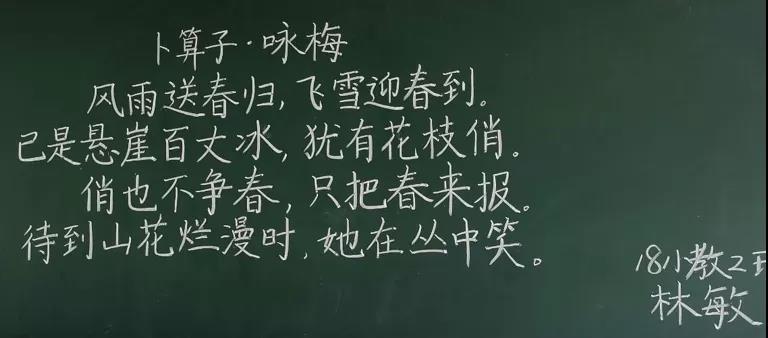 卜算子·咏梅
风雨送春归,飞雪迎春到。
已是悬崖百丈冰,犹有花枝俏。
俏也不争春,只把春来报。
待到山花烂漫时,她在丛中笑。
18小教2
林敏